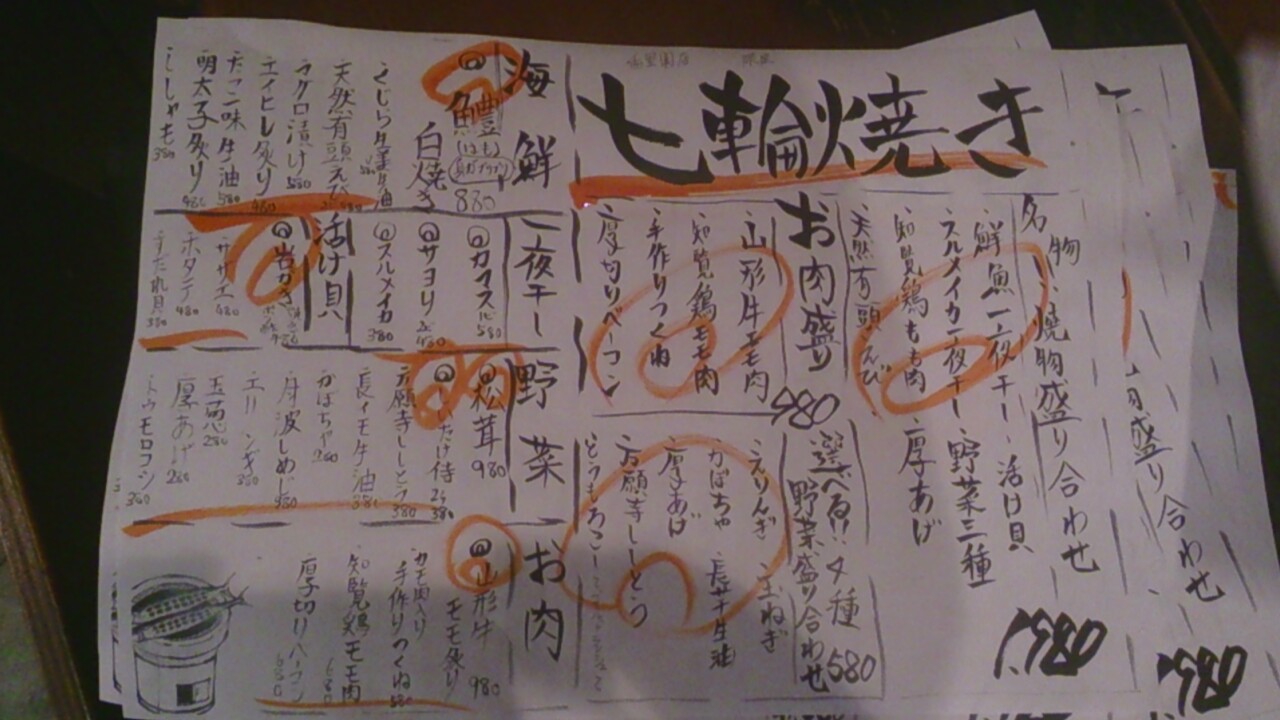 七輪焼き
名物 焼物盛り合わせ
鮮魚一夜干し
活け貝
スルメイカ一夜干し
野菜三種
知覧鶏もも肉
厚あげ
天然有頭えび
お肉盛り
980
山形牛モモ肉
知覧鶏モモ肉
手作りつくね
厚切りベーコン
選べる!!4種
野菜盛り合わせ
580
えりんぎ
玉ねぎ
かぼちゃ
長芋牛油
厚あげ
万願寺しとう
とうもろこし
海鮮
鱧
(はも)
白焼き
880
天然有頭えび
マグロ漬け
580
エイヒレ炙り
480
たこ味牛油
580
明太子炙り
480
ししゃも
380
一夜干し
カマス
580
サヨリ
スルメイカ
380
活け貝
岩がき
サザエ
480
ホタテ
480
すだれ貝
380
野菜
松茸
980
しいたけ侍
380
万願寺しとう
380
長イモ牛油
380
かぼちゃ
280
丹波しめじ
エリンギ
玉葱
280
厚あげ
280
トウモロコシ
380
お肉
山形牛
モモ炙り
980
カモ肉入り
手作りつくね
知覧鶏モモ肉
厚切りベーコン
盛り合わせ